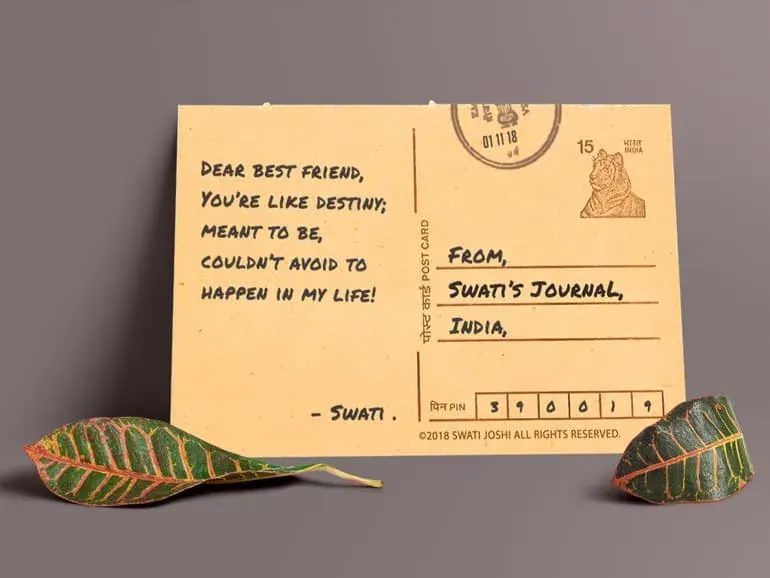 DEAR BEST FRIEND,
YOU'RE LIKE DESTINY;
MEANT TO BE,
COULDN'T AVOID TO
HAPPEN IN MY LIFE!
- SWATI .
पोस्ट कार्ड POST CARD
01 11 18
15 भारत
INDIA
FROM,
SWATI'S JOURNAL,
INDIA,
पिन PIN 390019
©2018 SWATI JOSHI ALL RIGHTS RESERVED.